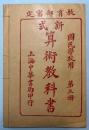 教育部審定
國民學校用
第三冊
新式
算術教科書
上海中華書局印行